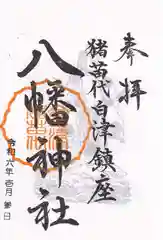 奉拝
猪苗代自津鎮座
八幡神社
令和六年壱月 日